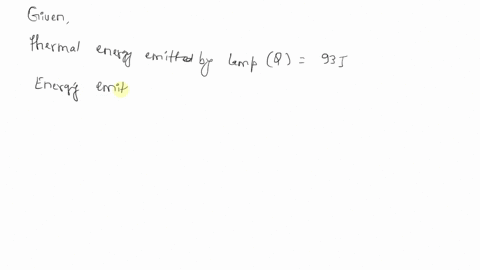 Given,
thermal energy emitted by lamp (Q) = 93J
Energy emit